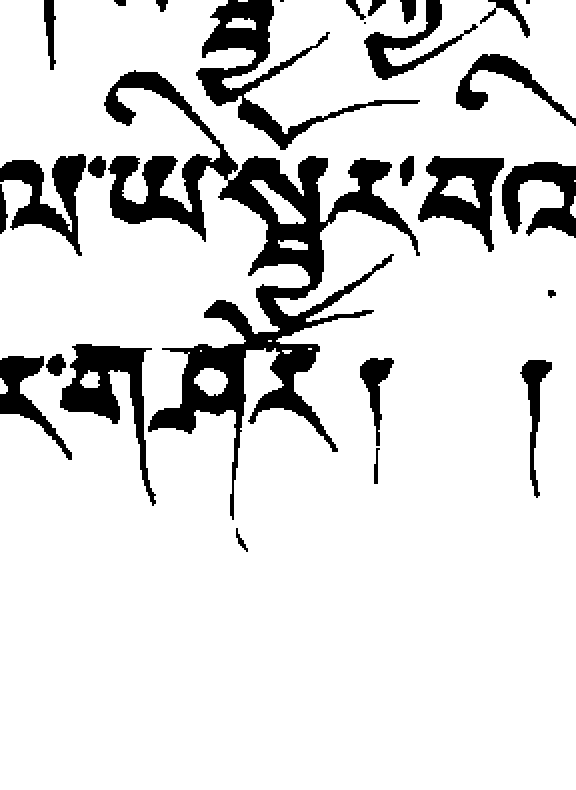 ལ་ཡི་སྦྱོར་བའི
ར་གཤོར། །